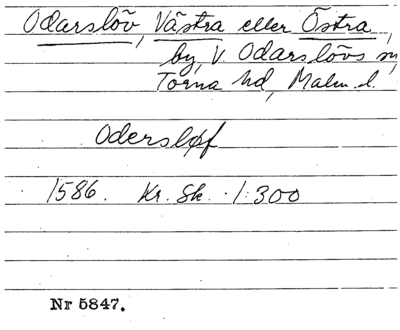 Odarslöv, Västra eller Östra,
by, V. Odarslövs sn,
Torna hd, Malm. l.
Odersløf
1586. Kr. Sk. 1:300
Nr 5847.